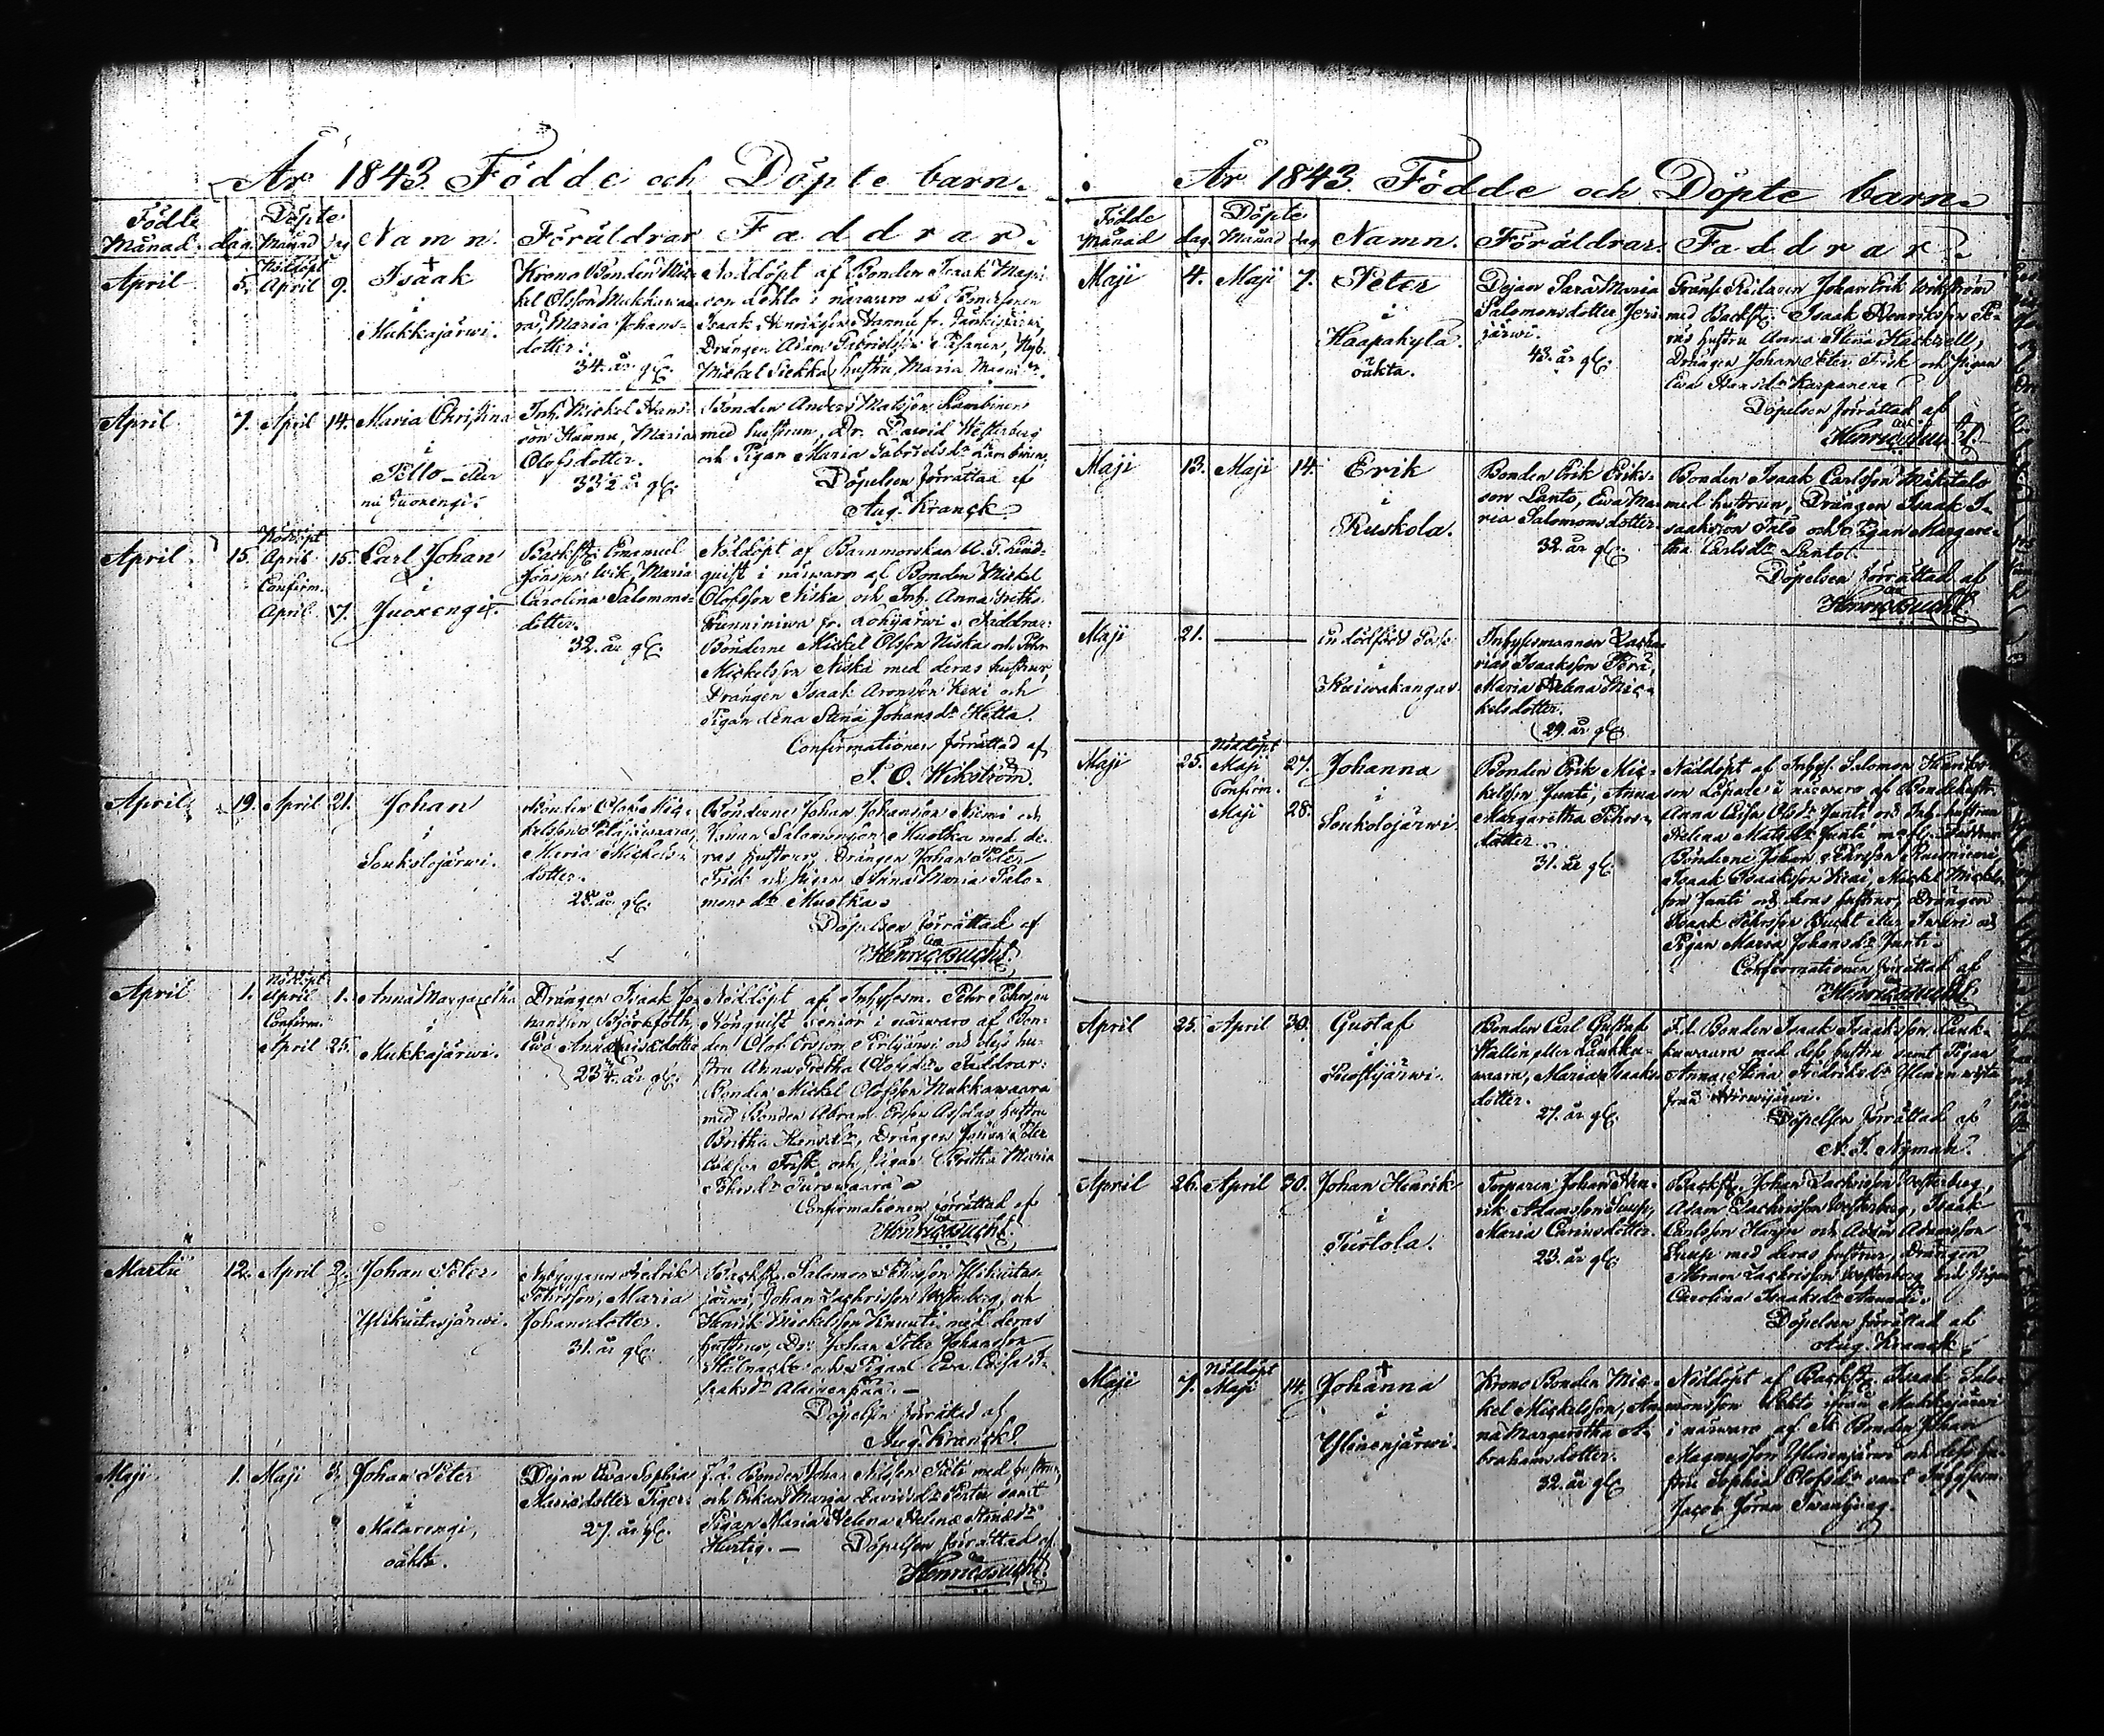 År 1843. Födde och Döpte barn.
Födde Månad. dag. Döpte Månad dag Namn. Föräldrar Faddrar.
April 5. Nöddöpt April 9. Isaak
i
Mukkajärwi.
Krono Bonden Mic-
kel Olsson Mukkawaa-
ra, Maria Johans-
dotter.
34. år gl.
Nöddöpt af Bonden Isaak Magni-
son Lohto i närwaro af Bondesonen
Isaak Henriksson Hannu fr.
Drängen Adam Gabrielsson
Mickel Siekka hustru Maria
April 7. April 14. Maria Christina
i
Pello eller
nu Juoxengi.
Inh. Mickel Hans-
son Hannu, Maria
Olofsdotter.
33½ år gl.
Bonden Anders Matsson Lambinen
med hustrun, Dr. David Westerberg
och Pigan Maria Gabrielsdr Lambinen.
Döpelsen förrättad af
Aug. Kranck.
April 15. Nöddöpt April 15. Confirm. April 17. Carl Johan
i
Juoxengi.
Backst. Emanuel
Jönsson Wik, Maria
Carolina Salomons-
dotter.
32. år gl.
Nöddöpt af Barnmorskan A. G. Lind-
quist i närwaro af Bonden Mickel
Olofsson Niska och Inh. Anna Gretha
fr. Lohijärwi. Faddrar:
Bönderne Mickel Olsson Niska och Pehr
Mickelsson Niska med deras hustrur,
Drängen Isaak Aronsson Kexi och
Pigan Lena Stina Johansdr Hetta.
Confirmationen förrättad af
P. O. Wikström.
April 19. April 21. Johan
i
Soukolojärwi.
Bonden Olof Mic-
kelsson Palojärwaara,
Maria Mickels-
dotter.
28. år gl.
Bönderne Johan Johansson Niemi och
Johan Salomonsson Muotka med de-
ras hustrur, Drängen Johan Peter
Frisk och Pigan Anna Maria Salo-
monsdr Muotka.
Döpelsen förrättad af
Henric Bucht.
April 1. Nöddöpt April 1. Confirm. April 25. Anna Margaretha
i
Mukkajärwi.
Drängen Isaak Jo-
hansson Björkfoth,
Ewa Anna Eriksdotter
23¼ år gl.
Nöddöpt af Inhysesm. Pehr Pehrsson
Rönquist Senior i närwaro af Bon-
den Olof Ersson Portijärwi och dess hu-
stru Anna Gretha Olofsdr. Faddrar:
Bonden Mickel Olofsson Mukkawaara
med Bonden Abram Ersson hustru
Britha Hansdr, Drängen Johan Peter
Frisk och Pigan Britha Maria
Pehrsdr Purowaara.
Confirmationen förrättad af
Henric Bucht.
Martii 12. April 2. Johan Peter
i
Ylikuittasjärwi.
Nybyggaren Fredrik
Pehrsson, Maria
Johansdotter.
31. år gl.
Backst. Salomon Pehrsson Ylikuittas-
järwi, Johan Zachrisson Westerberg, och
Henrik Mickelsson Knuuti med deras
hustrur, Dr. Johan Peter Johansson
Stålnacke och Pigan Ewa Caisa I-
saksdr Alainenpää.
Döpelsen förrättad af
Aug. Kranck.
Maji 1. Maji 3. Johan Peter
i
Matarengi,
oäkta.
Dejan Ewa Sophia
Mariadotter Tiger.
27. år gl.
f.d. Bonden Johan Nilsson Piets med hustru,
och Enkan Maria Davidsdr samt
Pigan Maria Helena Helenæ
Hurtig. Döpelsen förrättad af
Henric Bucht.
År 1843. Födde och Döpte barn.
Födde Månad dag. Döpte Månad dag Namn. Föräldrar. Faddrar.
Maji 4. Maji 7. Peter
i
Haapakylä.
oäkta.
Dejan Sara Maria
Salomonsdotter Jeri-
järwi.
43. år gl.
Gräns Ridaren Johan Erik Wikström
med Backst. Isaak Henriksson
hustru Anna Stina Hackzell,
Drängen Johan Peter Frisk och Pigan
Ewa Hansdr Karpanen
Döpelsen förrättad af
Henric Bucht.
Maji 13. Maji 14. Erik
i
Ruskola.
Bonden Erik Eriks-
son Lanto, Ewa Ma-
ria Salomonsdotter.
32. år gl.
Bonden Isaak Carlsson Mäkitalo
med hustrun, Drängen Isaak I-
saaksson Palo och Pigan Margare-
tha Carlsdr Lanto.
Döpelsen förrättad af
Henric Bucht.
Maji 21. En dödfödd
i
Kuiwakangas.
Inhysesmannen Zacha-
rias Isaaksson
Maria Helena Mic-
kelsdotter.
29. år gl.
Maji 25. Nöddöpt Maji 27. Confirm. Maji 28. Johanna
i
Soukolojärwi.
Bonden Erik Mic-
kelsson Junti, Anna
Margaretha Pehrs-
dotter.
31. år gl.
Nöddöpt af Inhys. Salomon
son i närwaro af Bondehustr.
Anna Caisa Olsdr Junti och Inh. hustrun
Helena Matsdr Junti m. fl. Faddrar:
Bönderne Johan Pehrsson
Isaak Isaaksson Kexi, Mickel Mickels-
son Junti och deras hustrur, Drängen
Isaak Pehrsson Bucht eller och
Pigan Maria Johansdr Junti.
Confirmationen förrättad af
Henric Bucht.
April 25. April 30. Gustaf
i
Puostijärwi.
Bonden Carl Gustaf
Wallin eller Laukku-
waara, Maria Isaaks-
dotter.
27. år gl.
f.d. Bonden Isaak Isaaksson Lauk-
kuwaara med dess hustru samt Pigan
Anna Stina Fredriksdr
från Hirwijärwi.
Döpelsen förrättad af
N. J. Nyman.
April 26. April 30. Johan Henrik
i
Turtola.
Torparen Johan Hen-
rik Adamsson
Maria Carinsdotter.
23. år gl.
Backst. Johan Zachrisson Westerberg,
Adam Zachrisson Westerberg, Isaak
Carlsson och Adam Adamsson
med deras hustrur, Drängen
Zachrisson Westerberg och Pigan
Carolina Isaaksdr
Döpelsen förrättad af
Aug. Kranck.
Maji 7. Nöddöpt Maji 14. Johanna
i
Ylinenjärwi.
Krono Bonden Mic-
kel Mickelsson, An-
na Margaretha A-
brahamsdotter.
32. år gl.
Nöddöpt af Backst. Isaak Salo-
monsson Lohto ifrån Mukkajärwi
i närwaro af Bonden Johan
Magnusson Ylinenjärwi och dess hu-
stru Sophia Olofsdr samt Inhysesm.
Jacob Jöran Swanberg.